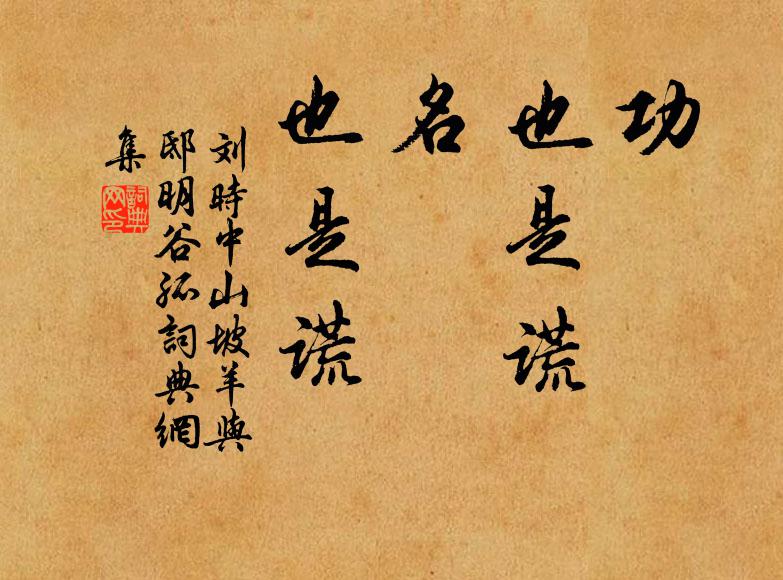 功
也是谎
名
也是谎
刘時中山坡羊與
邸明谷孤詞典網
集
詞典網印